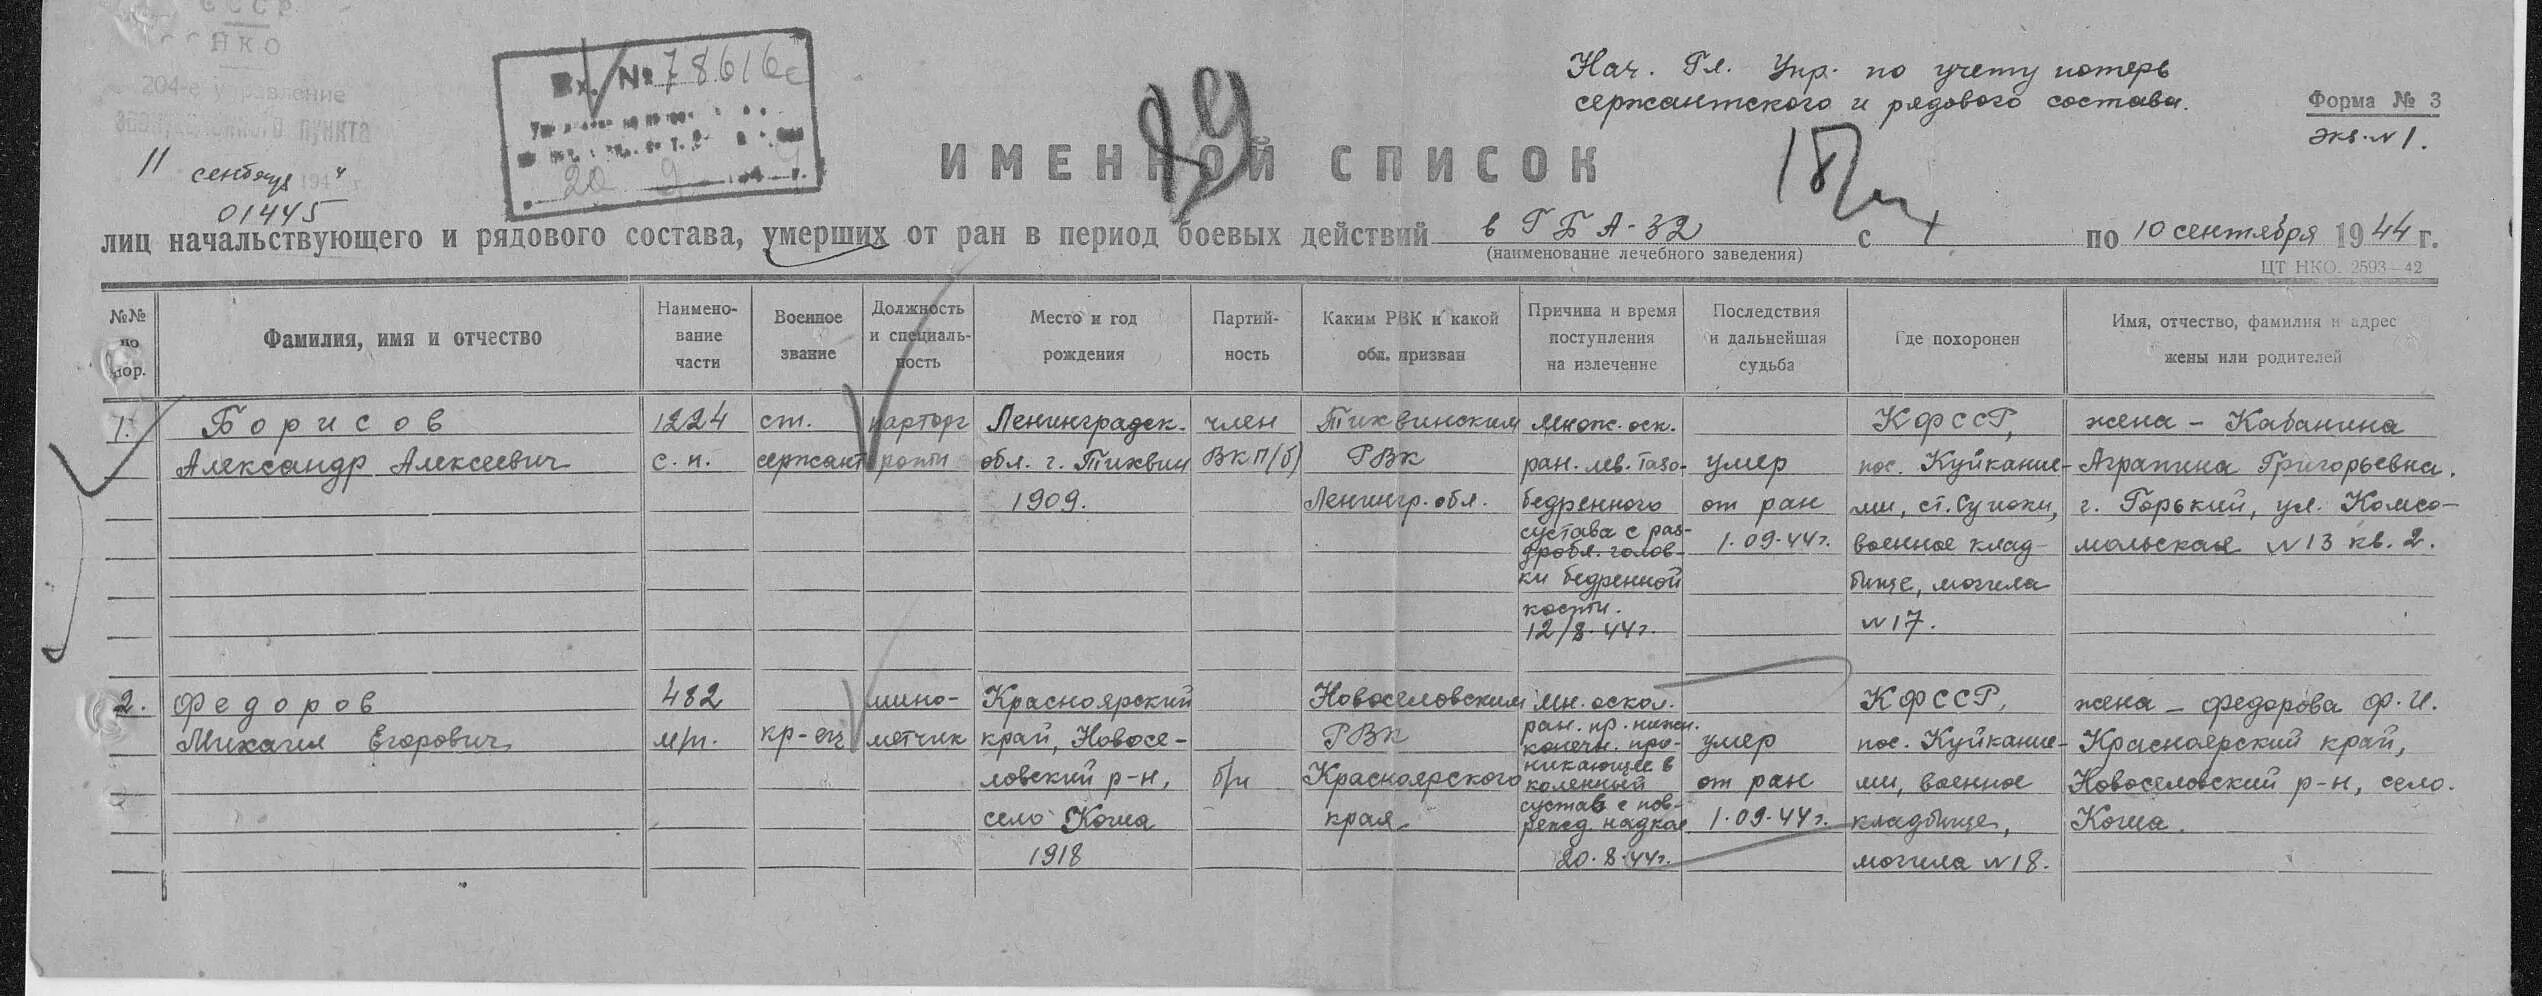 СССР
НКО
204-е управление
эвакуационного пункта
11 сентября 1944 г.
01445
Вх. № 78616с
20 9 г.
89
Нач. Гл. Упр. по учету потерь
сержантского и рядового состава.
Форма № 3
экз. N 1.
ИМЕННОЙ СПИСОК
лиц начальствующего и рядового состава, умерших от ран в период боевых действий в ГБА-32 с 1 по 10 сентября 1944 г.
(наименование лечебного заведения)
ЦТ НКО. 2593—42
№№ по пор.
Фамилия, имя и отчество
Наимено-
вание
части
Военное
звание
Должность
и специаль-
ность
Место и год
рождения
Партий-
ность
Каким РВК и какой
обл. призван
Причина и время
поступления
на излечение
Последствия
и дальнейшая
судьба
Где похоронен
Имя, отчество, фамилия и адрес
жены или родителей
1.
Борисов
Александр Алексеевич
1224
с. п.
ст.
сержант
парторг
роты
Ленинградск.
обл. г. Тихвин
1909.
член
ВКП/б)
Тихвинским
РВК
Ленингр. обл.
множ. оск.
ран. лев. тазо-
бедренного
сустава с раз-
дробл. голов-
ки бедренной
кости.
12/8.44г.
умер
от ран
1.09.44г.
КФССР,
пос. Куйкание-
ми, ст. Суйоки,
военное клад-
бище, могила
N17.
жена – Кабанина
Аграпина Григорьевна.
г. Горький, ул. Комсо-
мольская N13 кв. 2.
2.
Федоров
Михаил Егорович
482
м/п.
кр-ец
мино-
метчик
Красноярский
край, Новосе-
ловский р-н,
село Кома
1918
б/п
Новоселовским
РВК
Красноярского
края
мн. оскол.
ран. пр. нижн.
конечн. про-
никающее в
коленный
сустав с пов-
режд. надкол
20.8.44г.
умер
от ран
1.09.44г.
КФССР,
пос. Куйкание-
ми, военное
кладбище,
могила N18.
жена – Федорова Ф. И.
Красноярский край,
Новоселовский р-н, село.
Кома.